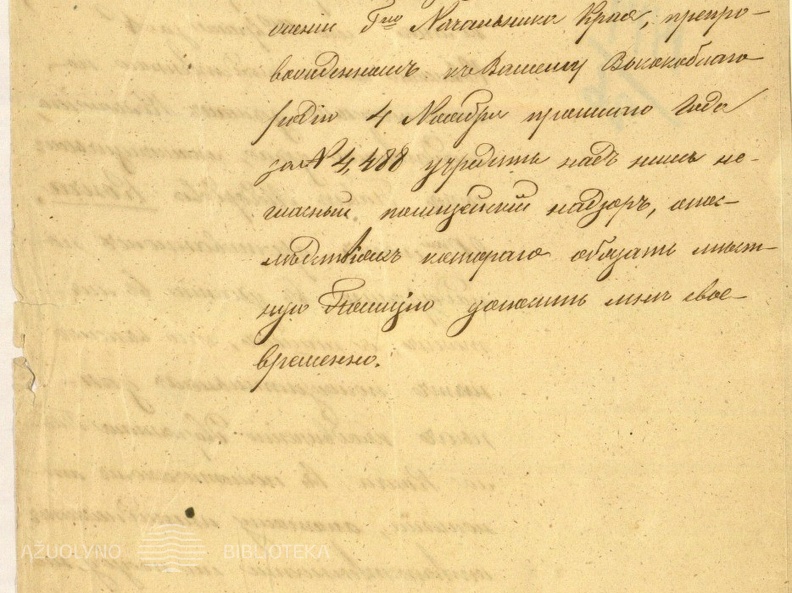 шеніи Гна Начальника Края, препро-
вожденномъ къ Вашему Высокоблаго-
родію 4 Ноября прошлаго года
за № 4,488 учредить надъ нимъ не-
гласный полицейскій надзоръ, о пос-
лѣдствіяхъ котораго обязать мѣст-
ную Полицію доносить мнѣ свое-
временно.
AŽUOLYNO BIBLIOTEKA